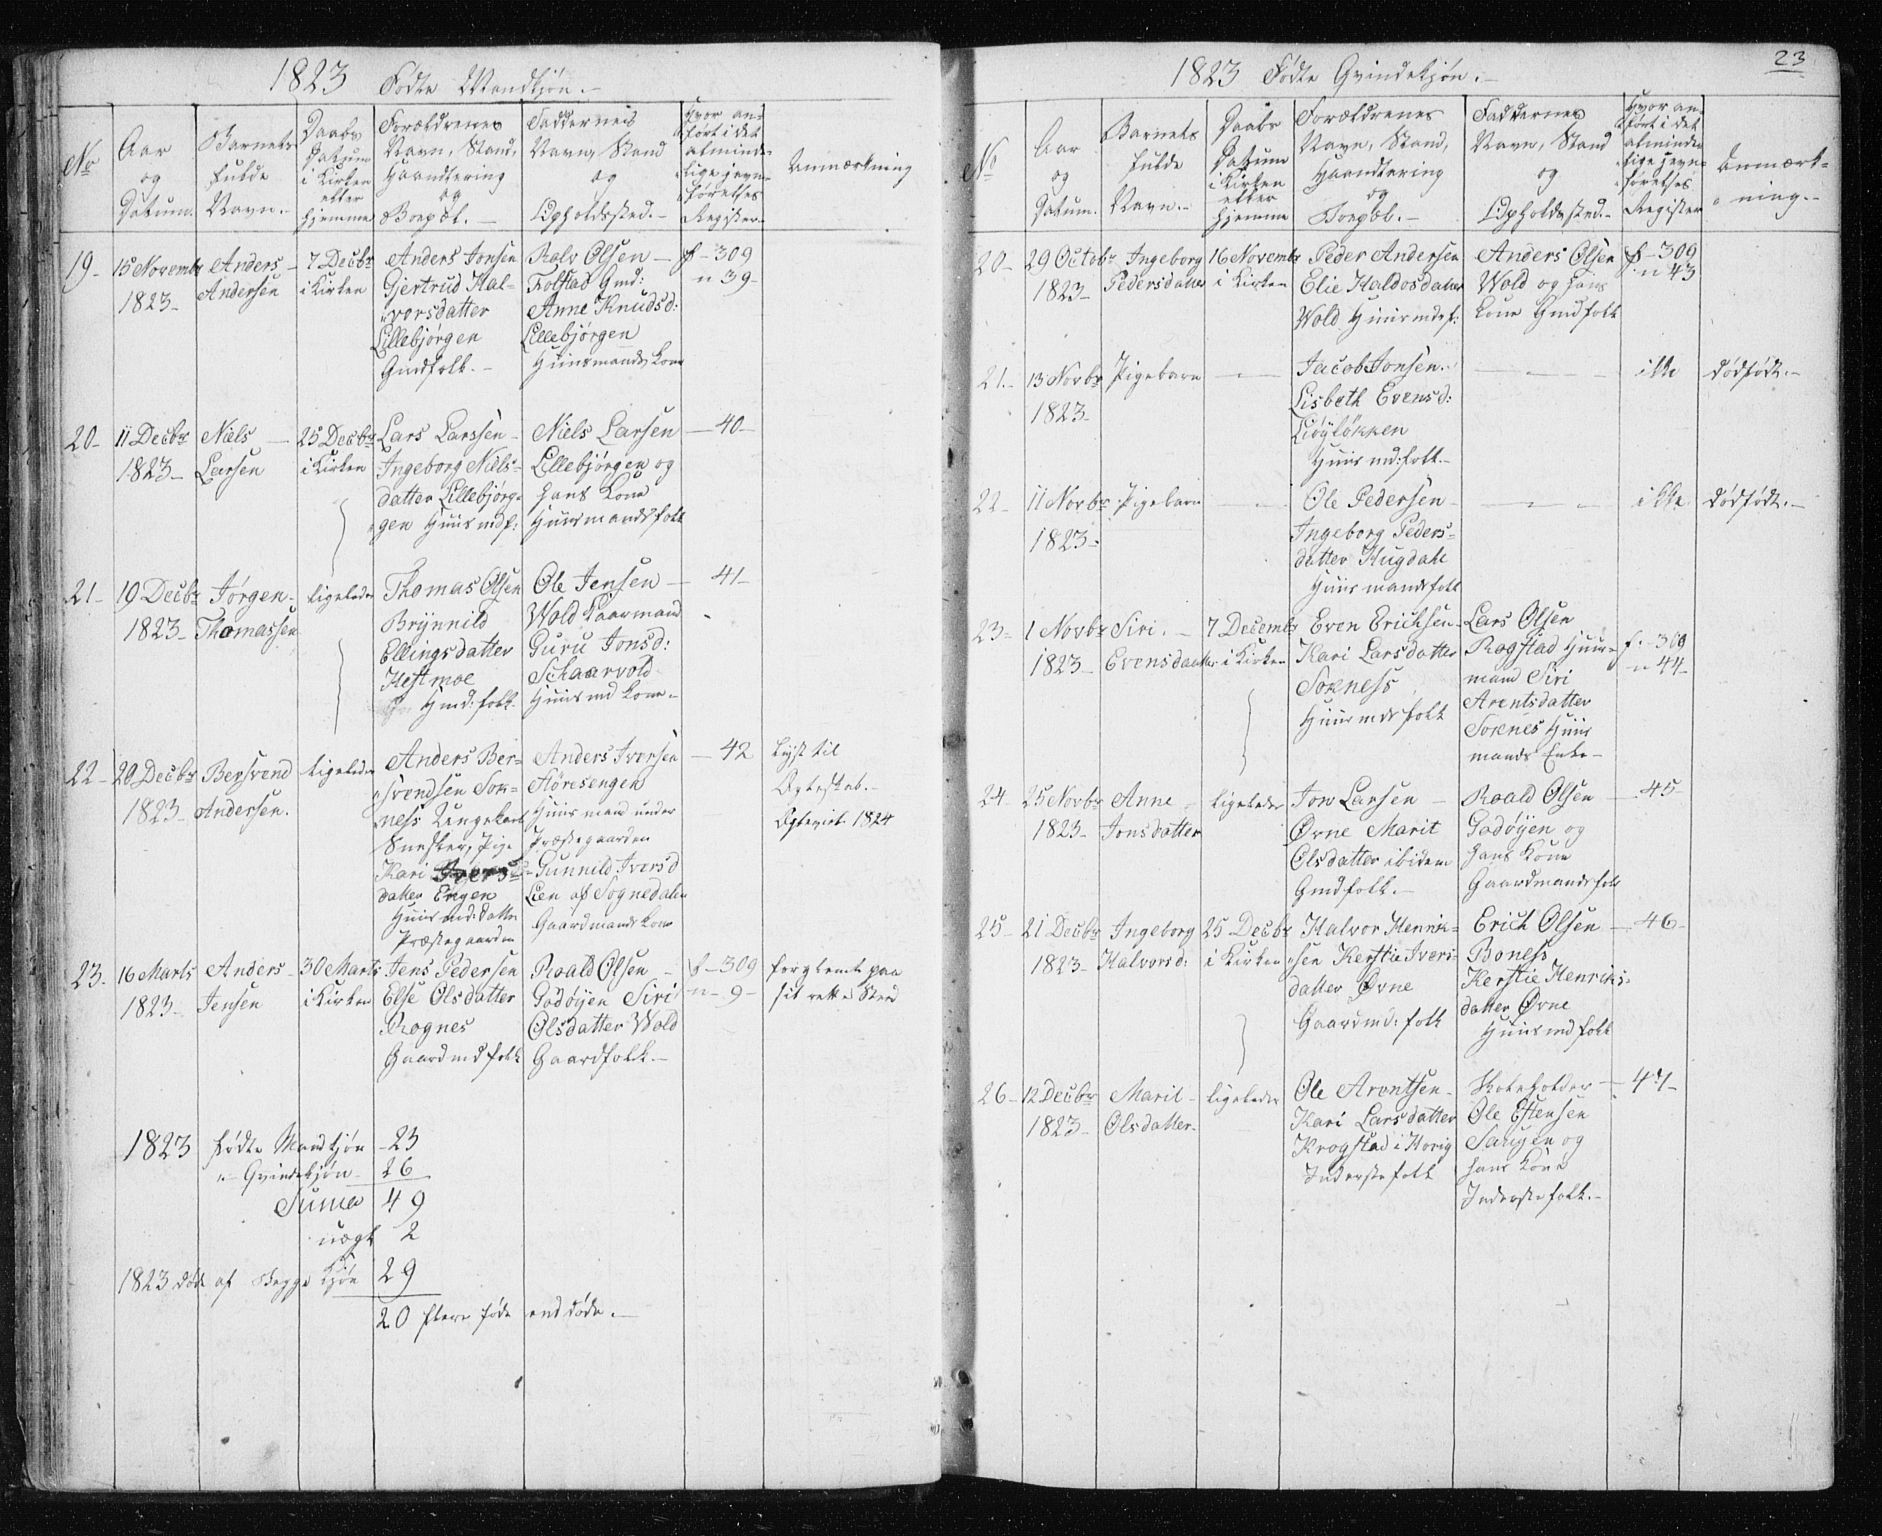 1823 Fødte Mandkjøn.-
No
Aar
og
Datum.
Barnets
fulde
Navn.-
Daabs
Datum
i Kirken
eller
hjemme
Forældrenes
Navn, Stand,
Haandtering
og
Boepæl.-
Faddernes
Navn, Stand
og
Opholdssted.-
Hvor an-
ført i det
alminde-
lige jevn-
førelses
Register-
Anmærkning
19-
15 Novembr
1823-
Anders
Andersen
7 Decbr
i Kirken
Anders Jonsen
Gjertrud Hal-
vorsdatter
Lillebjørgen
Gmdfolk.-
Rolv Olsen-
Folstad Gmd:
Anne Knudsd:
Lillebjørgen
Huusmands Kone
f-309
n 39-
20-
11 Decbr
1823-
Niels
Larsen
25 Decbr
i Kirken
Lars Larssen-
Ingeborg Niels-
datter Lillebjørg-
gen Huusmdf:
Niels Larsen
Lillebjørgen og
hans Kone
Huusmandsfolk
-40-
21-
19 Decbr
1823-
Jørgen-
Thomassen
ligeledes
Thomas Olsen
Brynnild
Ellingsdatter
Hestmoe
Gmd:folk.
Ole Jensen-
Wold Kaarmand
Guru Jonsd:
Schaarvold
Huusmd Kone.
-41-
22-
20 Decbr
1823-
Bersvend
Andersen.
ligeledes
Anders Ber-
svendsen Sok-
ness Ungekarl
Snedker, Pige
Kari Ivers-
datter Engen
Huusmd: Datter
Præstegaarden
Anders Iversen
Støresengen
Huusmand under
Præstegaarden
Gunnild Iversd
Lien af Sognedalen
Gaardmands Kone
-42
lyst til
Ægteskab.-
Ægteviet 1824
23.
16 Marts
1823-
Anders-
Jensen
30 Marts
i Kirken
Jens Pedersen
Else Olsdatter
Rognes
Gaardmdfolk
Roald Olsen-
Godøyen Siri
Olsdatter Wold
Gaardfolk.-
f-309
n-9-
forglemt paa
sit rette Sted
1823 fødte Mandkjøn 23
"- Qvindekjøn- 26
Suma 49
uægt 2
1823 døde af Begge Kjøn 29
20 flere føde end døde.-
23
1823 Fødte Qvindekjøn.-
No
Aar
og
Datum.
Barnets
fulde
Navn.-
Daabs
Datum
i Kirken
eller
hjemme
Forældrenes
Navn, Stand,
Haandtering
og
Boepæl.-
Faddernes
Navn, Stand
og
Opholdssted.-
Hvor an-
ført i det
alminde-
lige jevn-
førelses
Register
Anmærk-
ning.-
20-
29 Octobr
1823-
Ingeborg
Pedersdatter
16 Novembr
i Kirken
Peder Andersen
Elie Haldosdatter
Wold Huusmdsf:
Anders Olsen
Wold og hans
Kone Gmdfolk
f-309
n 43
21-
13 Novbr
1823-
Pigebarn
Jacob Jonsen.
Lisbeth Evensd:
Liøyløkken
Huusmd:folk.-
ikke
dødfødt.-
22-
11 Novbr
1823-
Pigebarn
Ole Pedersen-
Ingeborg Peders-
datter Hugdahl
Huusmandsfolk
ikke
dødfødt.-
23-
1 Novbr
1823-
Siri.-
Evensdatter
7 Decembr
i Kirken
Even Erichsen-
Kari Larsdatter
Sokness
Huusmdsfolk
Lars Olsen
Rogstad Huus-
mand Siri
Arentsdatter
Soknes Huus
mands Enke-
f-309
n 44-
24-
25 Novbr
1823-
Anne
Jonsdatter
ligeledes
Jon Larsen-
Øvne Marit
Olsdatter ibidem
Gmdfolk.-
Roald Olsen
Godøyen og
hans Kone
Gaardmandsfolk
-45-
25-
21 Decbr
1823-
Ingeborg
Halvorsd:
25 Decbr
i Kirken
Halvor Henrik-
sen Kerstie Ivers-
datter Øvne
Gaardmd:folk
Erich Olsen
Boness
Kerstie Henriks-
datter Øvne
Huusmdfolk
-46-
26-
12 Decbr
1823-
Marit-
Olsdatter-
ligeledes
Ole Arentsen-
Kari Larsdatter
Krogstad i Horig
Inderstefolk
Skoleholder
Ole Estensen
Saugen og
hans Kone
Inderstefolk.-
-47-